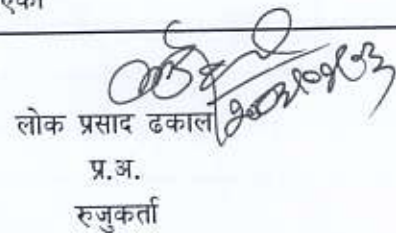 एको
लोक प्रसाद ढकाल
प्र.अ.
रुजुकर्ता